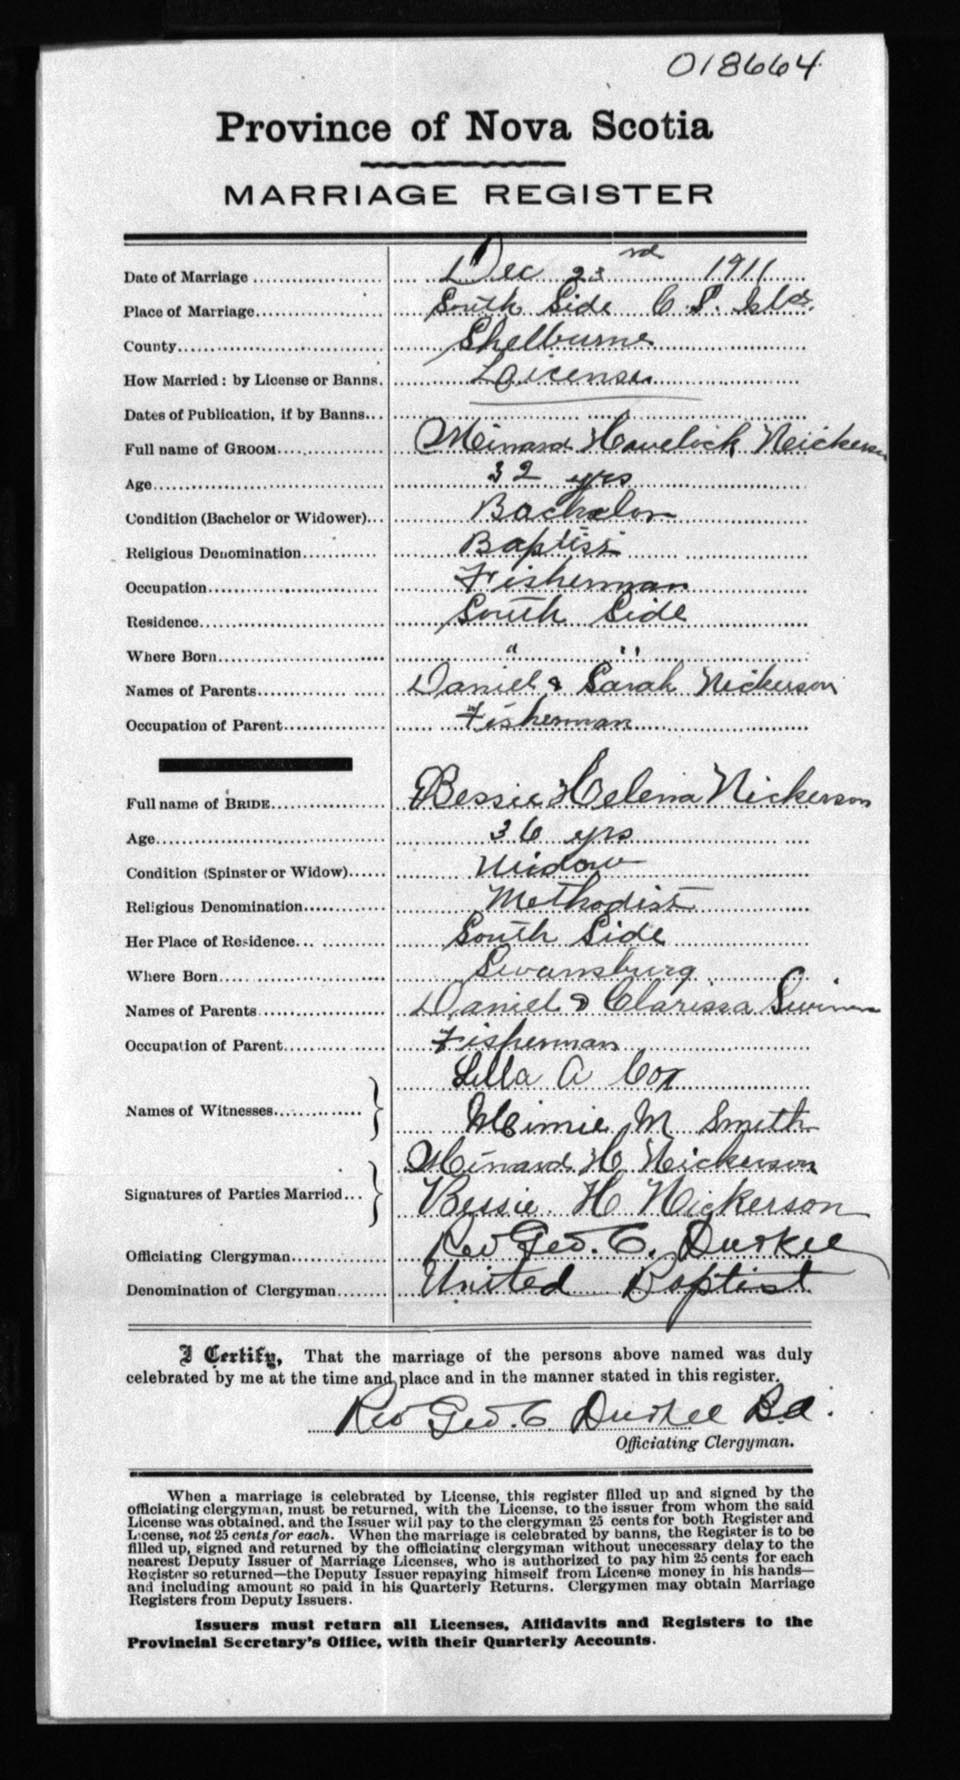 018664
Province of Nova Scotia
MARRIAGE REGISTER
Date of Marriage Dec 23rd 1911
Place of Marriage South Side C. S. Isld.
County Shelburne
How Married: by License or Banns. License
Dates of Publication, if by Banns
Full name of GROOM Minard Havelock Nickerson
Age 32 yrs
Condition (Bachelor or Widower) Bachelor
Religious Denomination Baptist
Occupation Fisherman
Residence South Side
Where Born " "
Names of Parents Daniel & Sarah Nickerson
Occupation of Parent Fisherman
Full name of BRIDE Bessie Helena Nickerson
Age 36 yrs
Condition (Spinster or Widow) Widow
Religious Denomination Methodist
Her Place of Residence South Side
Where Born Swansburg
Names of Parents Daniel & Clarissa
Occupation of Parent Fisherman
Lella A Cox
Names of Witnesses
Minnie M Smith
Minard H Nickerson
Signatures of Parties Married
Bessie H Nickerson
Officiating Clergyman Rev Geo. C. Durkee
Denomination of Clergyman United Baptist
I Certify, That the marriage of the persons above named was duly
celebrated by me at the time and place and in the manner stated in this register.
Rev Geo. C. Durkee B.A.
Officiating Clergyman.
When a marriage is celebrated by License, this register filled up and signed by the
officiating clergyman, must be returned, with the License, to the issuer from whom the said
License was obtained, and the Issuer will pay to the clergyman 25 cents for both Register and
License, not 25 cents for each. When the marriage is celebrated by banns, the Register is to be
filled up, signed and returned by the officiating clergyman without unecessary delay to the
nearest Deputy Issuer of Marriage Licenses, who is authorized to pay him 25 cents for each
Register so returned—the Deputy Issuer repaying himself from License money in his hands—
and including amount so paid in his Quarterly Returns. Clergymen may obtain Marriage
Registers from Deputy Issuers.
Issuers must return all Licenses, Affidavits and Registers to the
Provincial Secretary's Office, with their Quarterly Accounts.